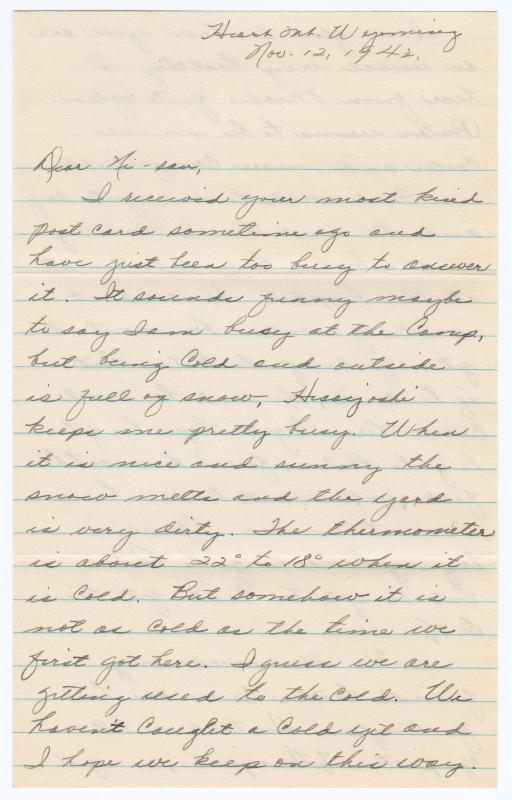 Heart Mt. Wyoming
Nov. 12, 1942.
Dear Ni-san,
I received your most kind
post card sometime ago and
have just been too busy to answer
it. It sounds funny maybe
to say I am busy at the Camp,
but being cold and outside
is full of snow, Hisayoshi
keeps me pretty busy. When
it is nice and sunny the
snow melts and the yard
is very dirty. The thermometer
is about 22° to 18° when it
is cold. But somehow it is
not as cold as the time we
first got here. I guess we are
getting used to the cold. We
haven't caught a cold yet and
I hope we keep on this way.